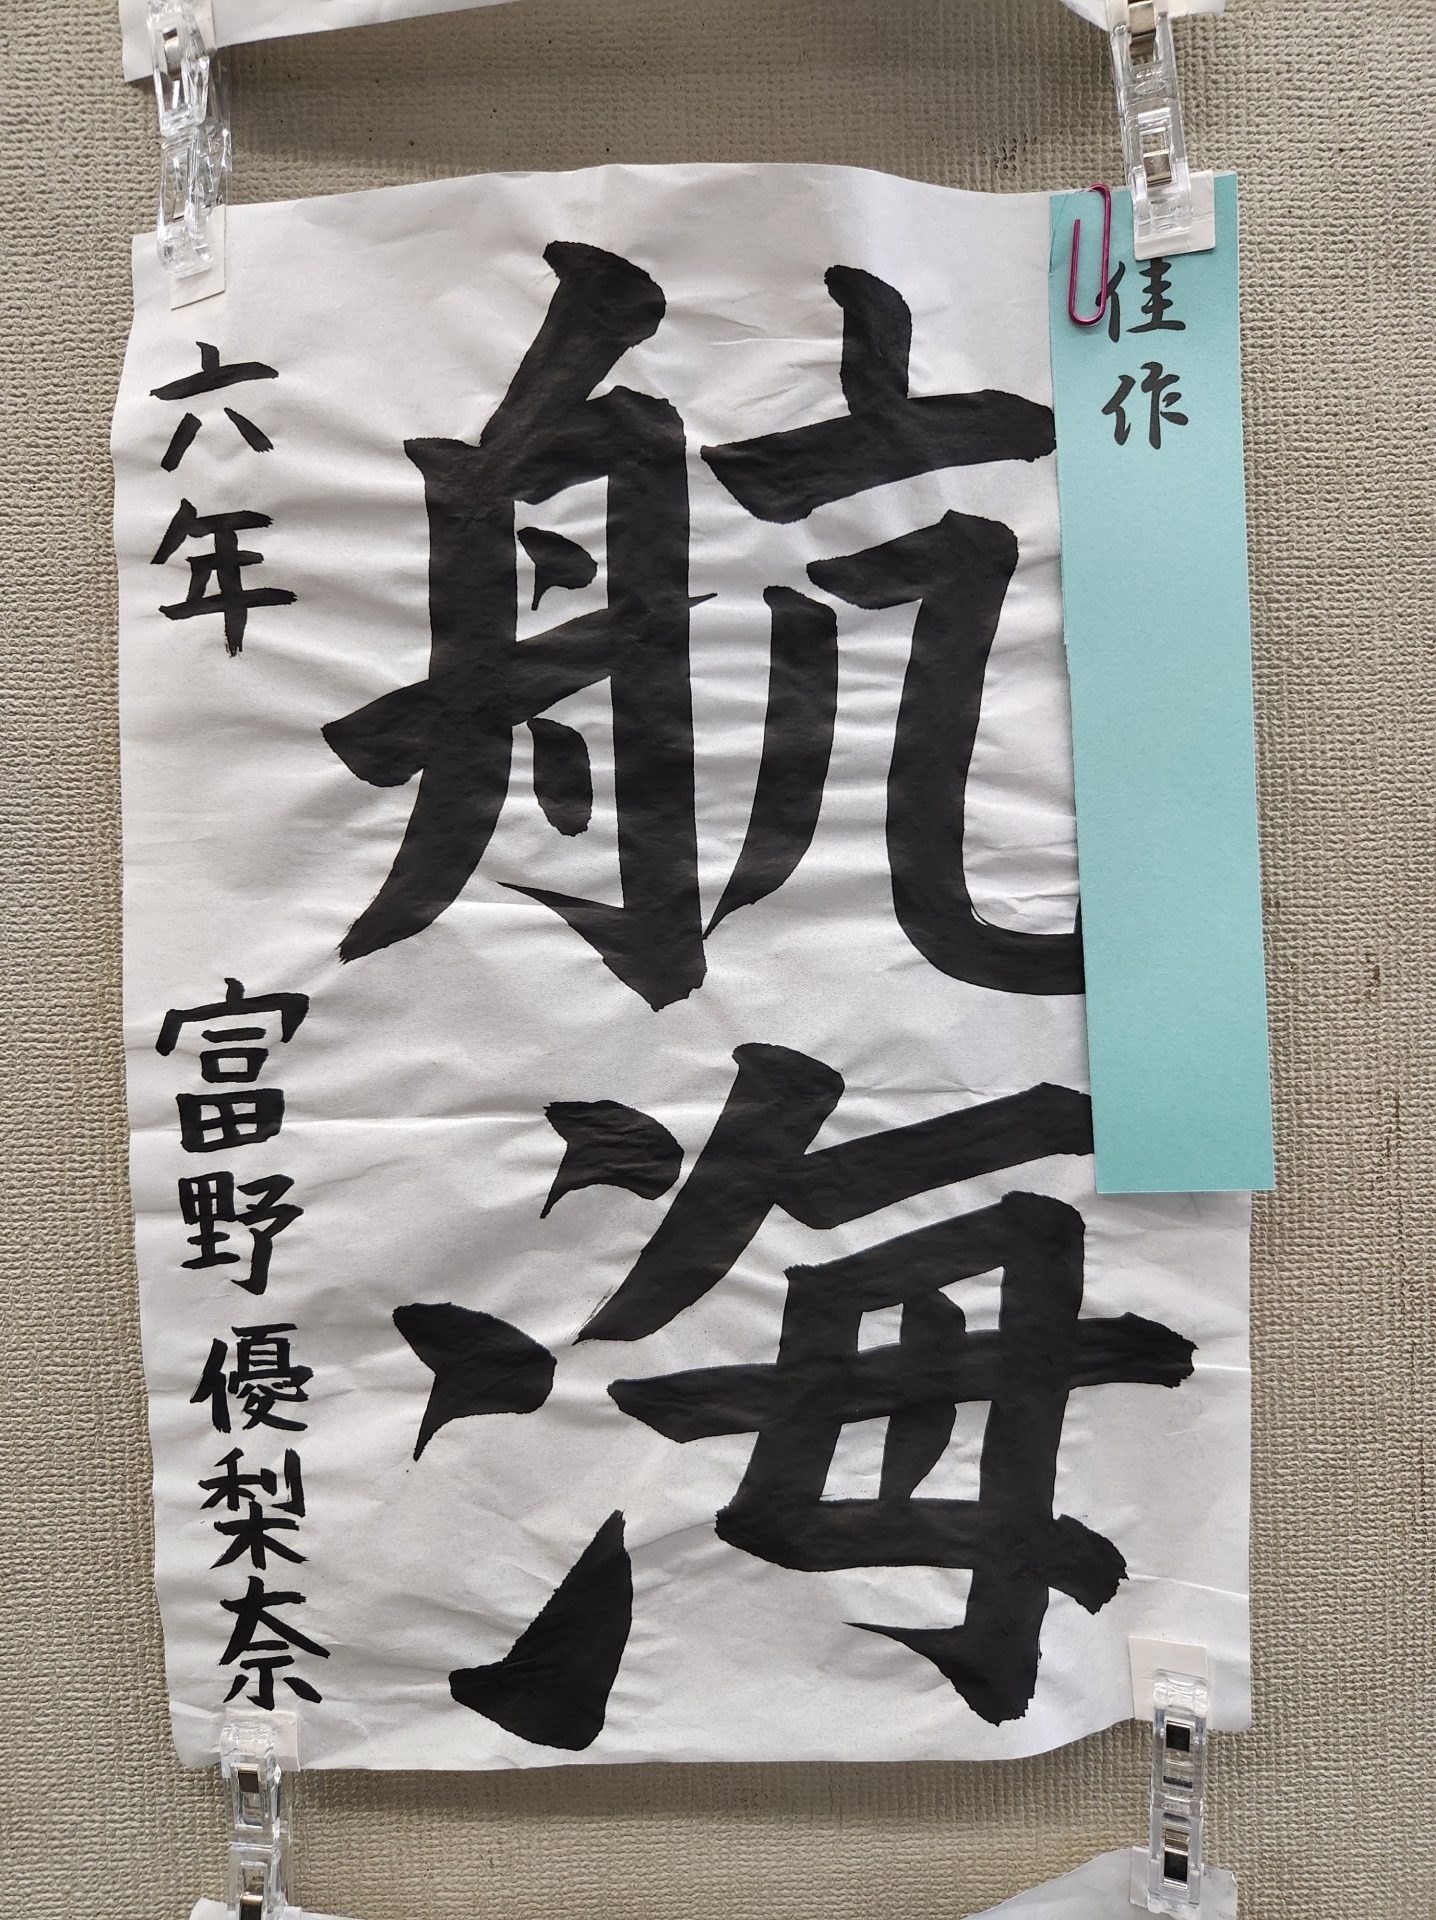 佳作
航海
六年 富野優梨奈